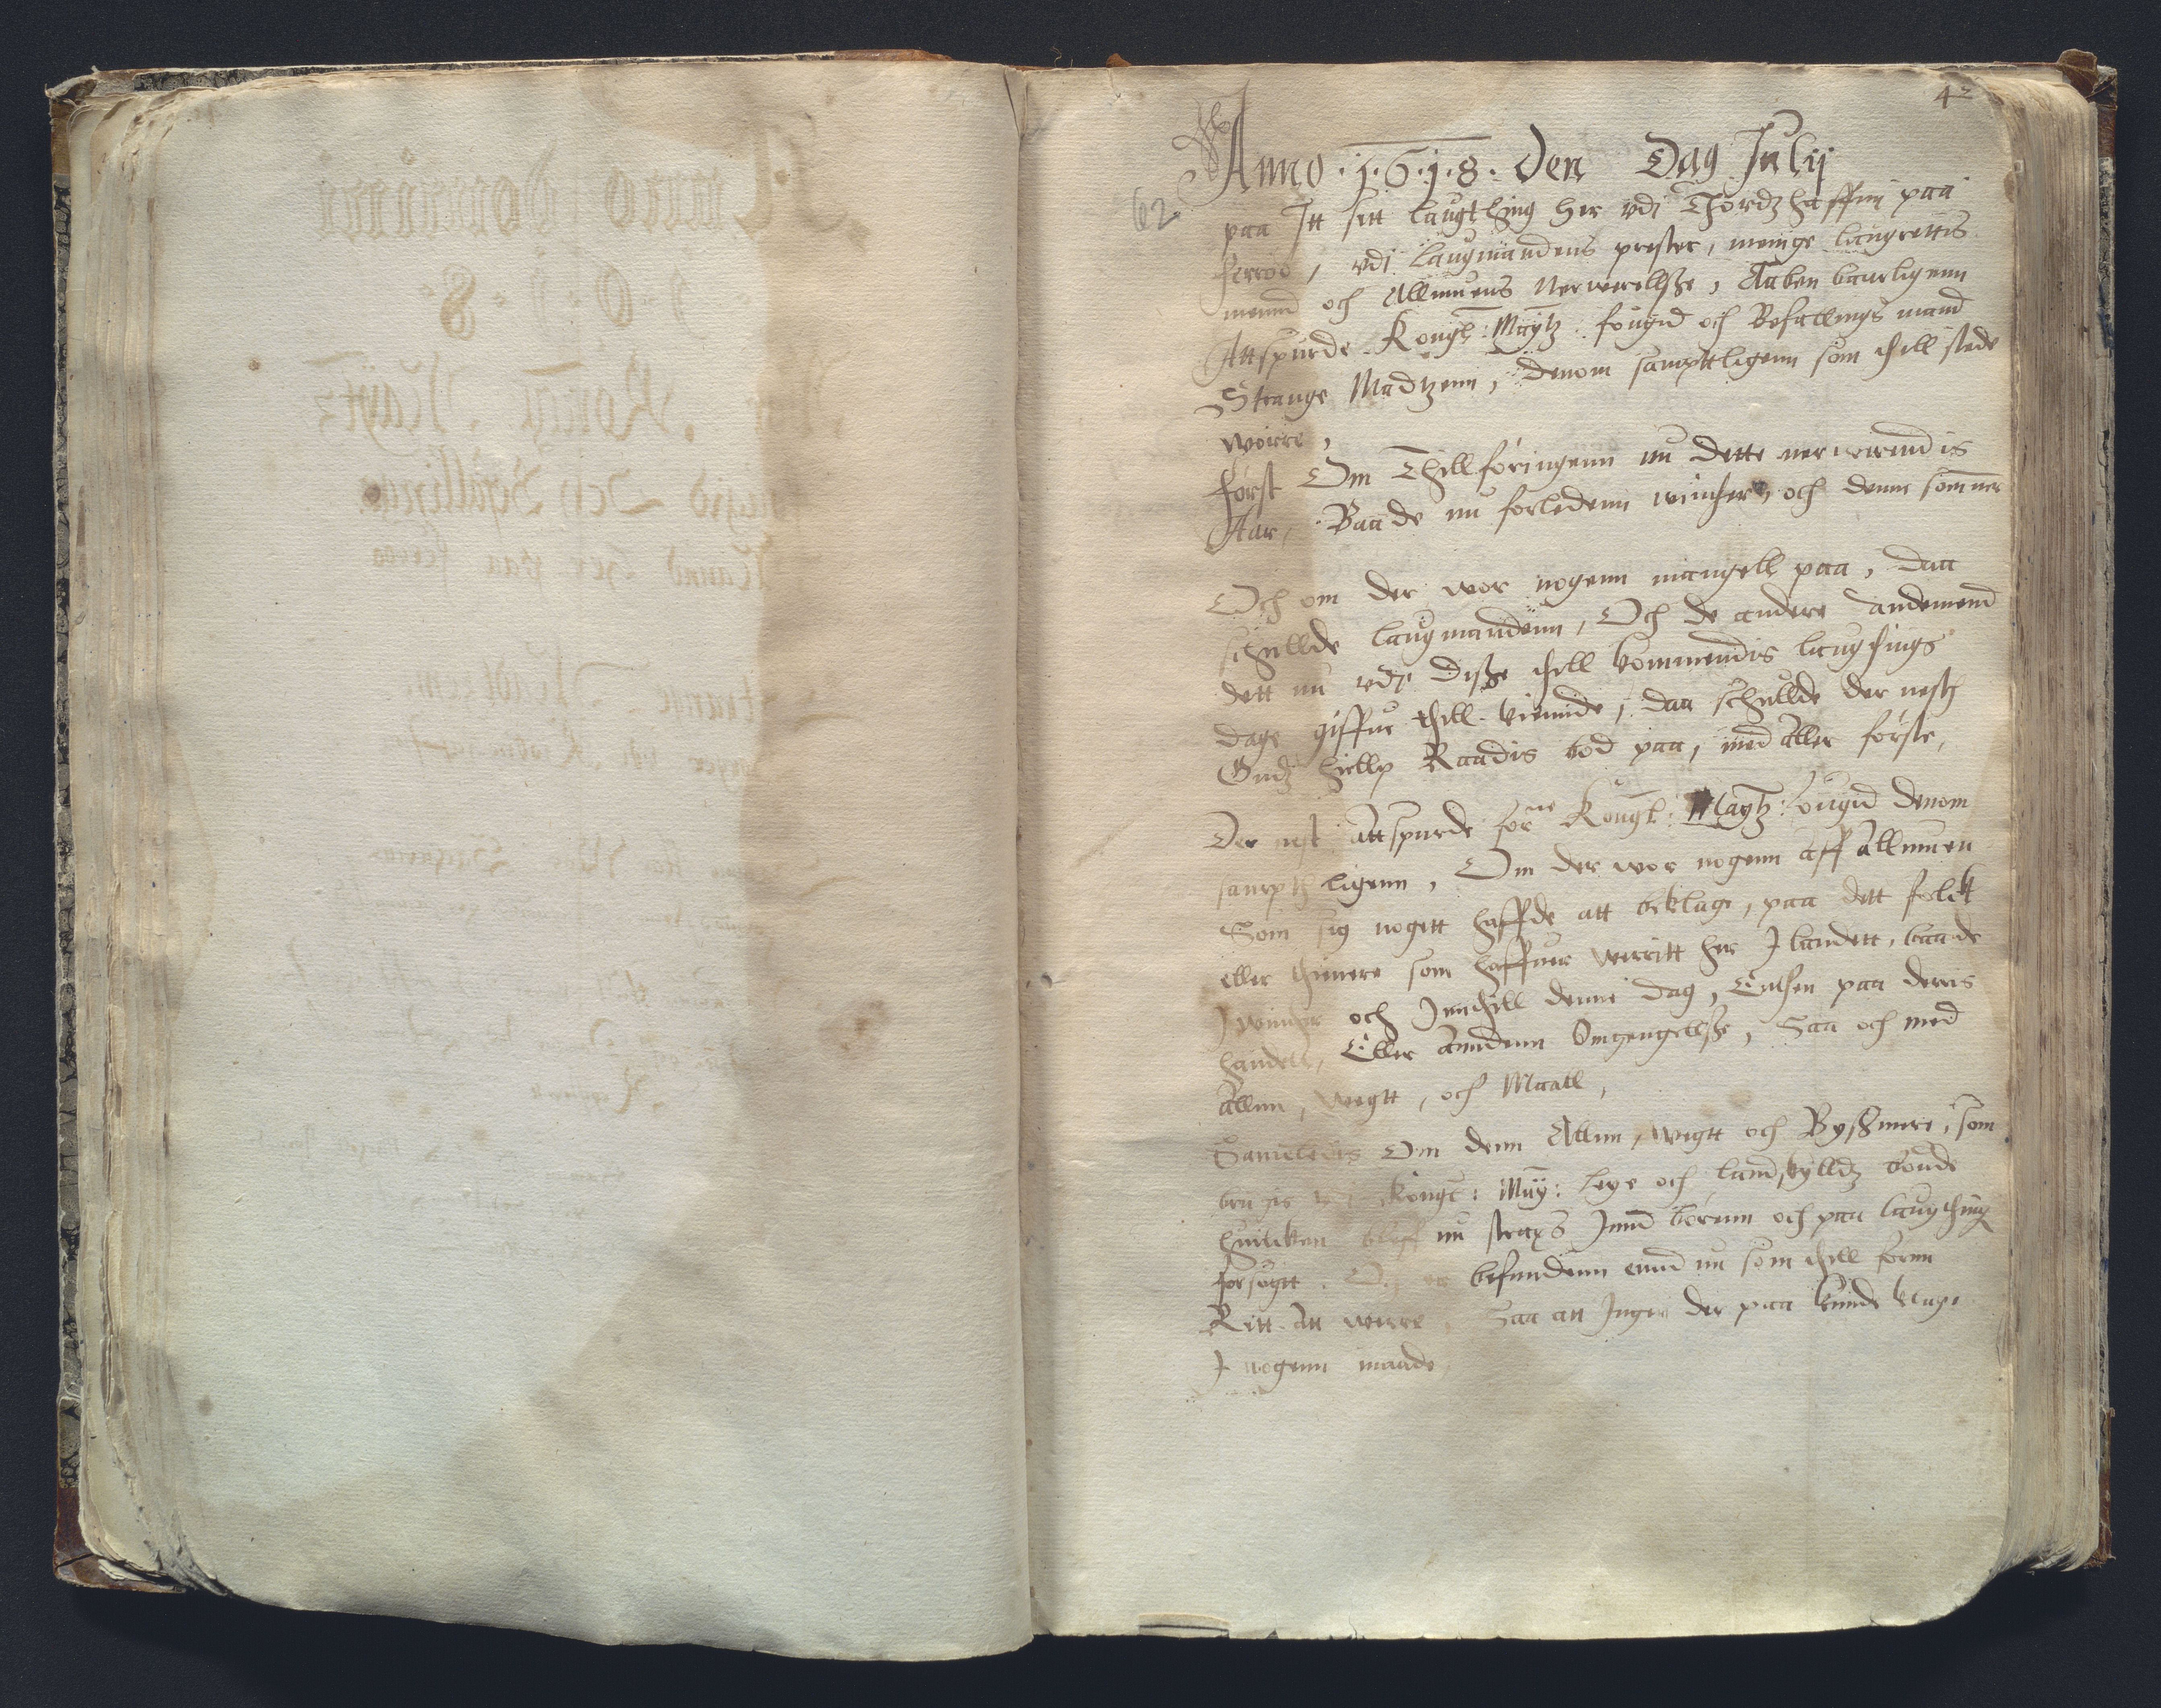 42
Anno . 1 . 6 . 1 . 8 . den Dag Julij
62
paa Itt sett laugthing her vdi Thordzhaffnn paa
ferröe, vdi laugmandens prester, menige laugrettis
mennd och Allmuens Nerwerellsze, Aaben baarligenn
Attspurde Kongl: Maytz: fougid och Befallings mand
Strange Madtzenn, denom samptligenn som thill stede
worre,
först Om Thillföringenn nu dette nerwerendis
Aar, Baade nu forledenn winther, och denne sommer
Och om der wor nogenn mangell paa, daa
schullde laugmandenn, Och de andere dandemend
dett nu vdj disze thill kommendis laugthings
dage giffue thill kiennde, daa schullde der nesth
Gudz hiellp Raadis bod paa, med aller förste,
Der nest Attspurde forne Kongl: Maytz: fougid denom
sampthligenn, Om der wor nogenn aff Allmuen
Som sig nogett haffde att beklage, paa dett folck
eller thienere som haffuer werritt her I landett, baade
I winther och Innthill denne dag, Enthen paa deris
handell, Eller anndenn Omgengellsze, Saa och med
Allnn, wegtt, och Maall,
Sameledis Om denn Allnn, wegtt och Byszmere, som
brugis vdi Kongl: May: leye och landskylldz bonde
huilcken bleff nu straxs Innd börenn och paa laugthing
forsögtt. Och er befundenn ennd nu som thill fornn
Rett Att werre, Saa att Ingen der paa kunde klage
I nogenn maade